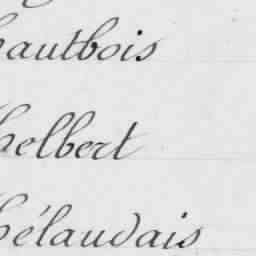 hautbois
helbert
hélaudais